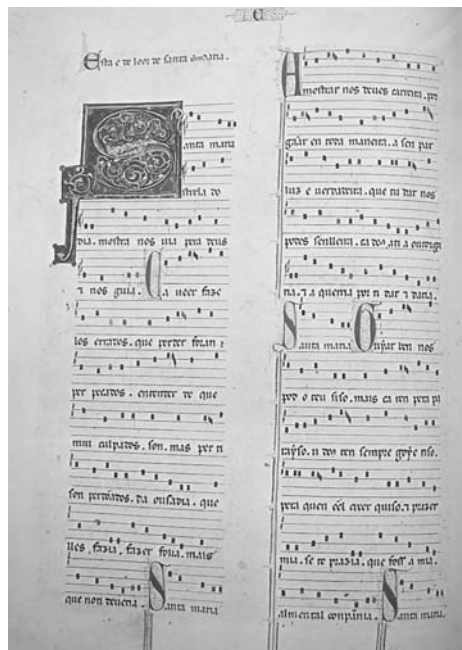 C
Esta e de loor de santa maria.
Santa maria
strela do
dia. mostra nos uia pera deus
τ nos guia. Ca ueer faze
los errados. que perder foran
per pecados. entender de que
mui culpados. son. mas per ti
son perdõados. da ousadia. que
lles. fazia. fazer folia. mais
que non deueria. Santa maria
Amostrar nos deues carreira. por
gãar en toda maneira. a sen par
luz e uerdadeira. que tu dar nos
podes senlleira. ca a ti a outorga
ria. τ a querria por ti dar τ daria.
Santa maria Guyar ben nos
pod o teu siso. mais ca ren pera pa
rayso. u ten sempre goye riso.
pera quen creer quiso. τ prazer
mia. se te prazia. que foss a mia.
alm en tal conpãnia. Santa maria.